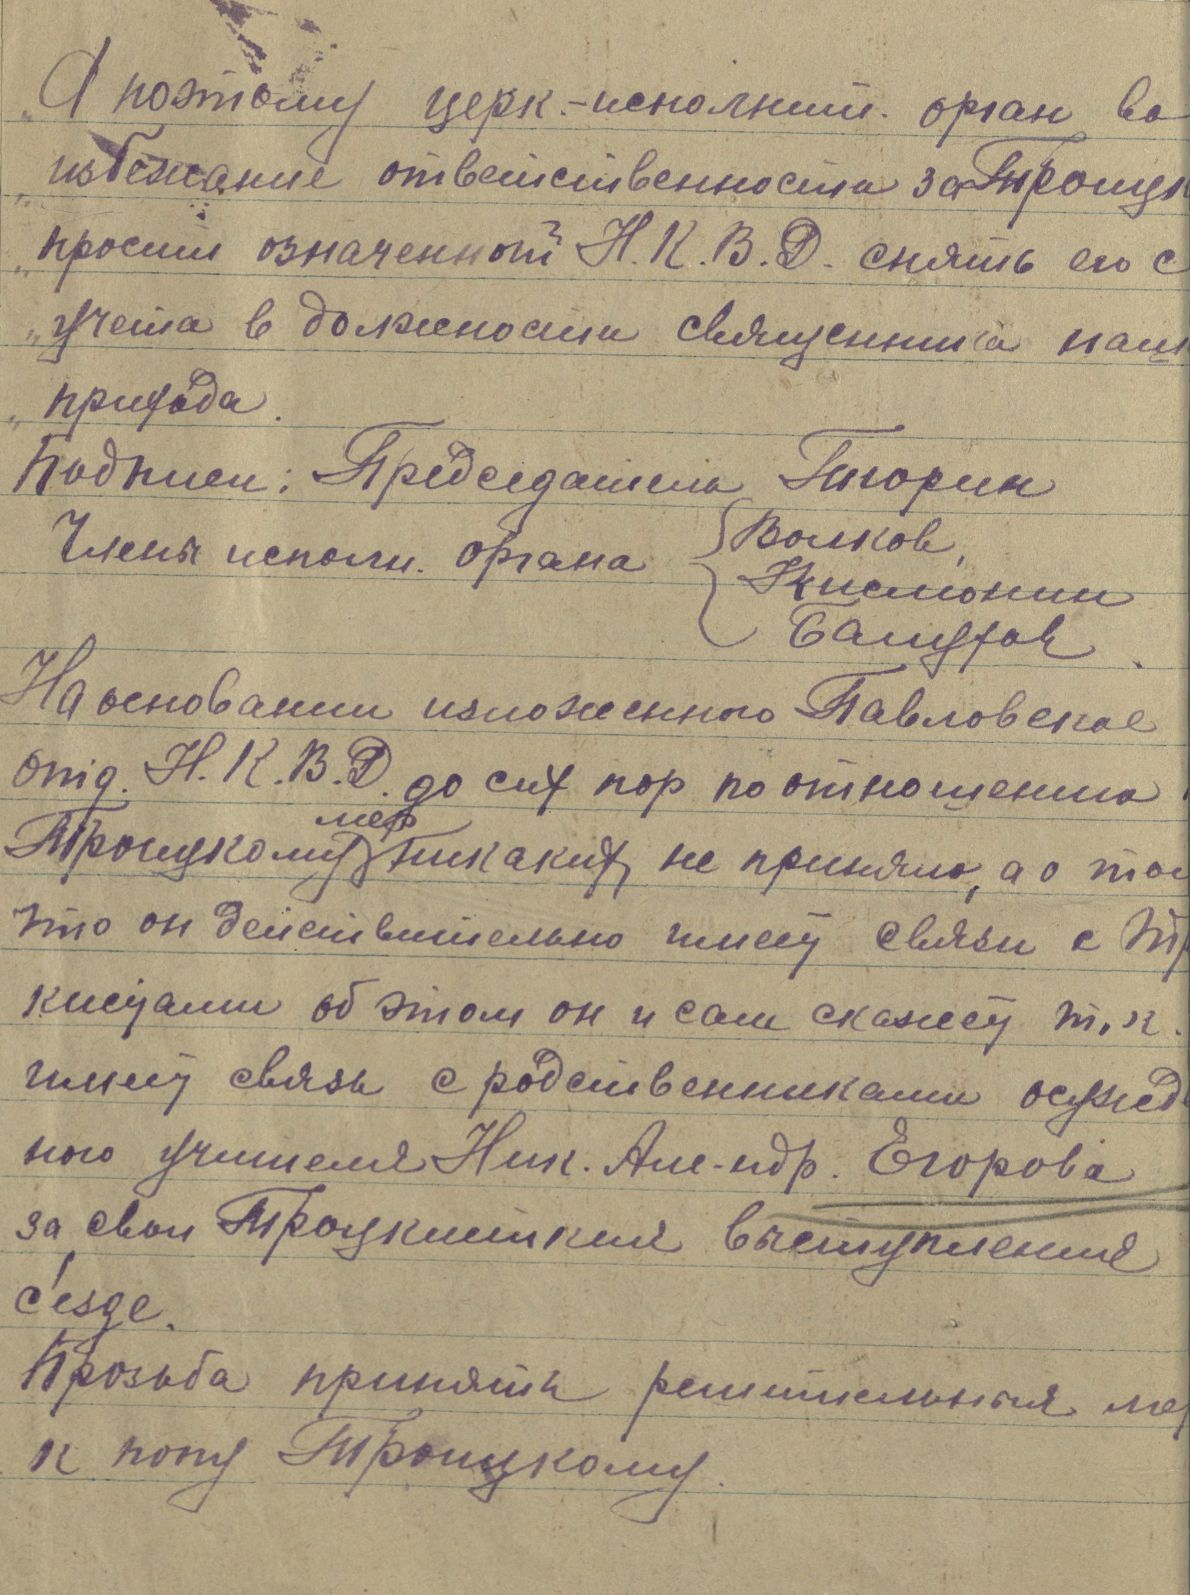 „А поэтому церк.-исполнит. орган во
„избежание ответственности за Троицк
„просит означенный Н.К.В.Д. снять его с
„учета в должности священника наш
„прихода.
Подписи: Председатель Тюрин
Члены исполн. органа { Волков,
Кислюнин
Балухов.
На основании изложенного Павловское
отд. Н.К.В.Д. до сих пор по отношению
мер
Троицкому никаких не приняло, а о том
что он действительно имеет связи с Тр
кистами об этом он и сам скажет т.к.
имеет связь с родственниками осужд
ного учителя Ник. Але-ндр. Егорова
за свои Троцкисткия выступления
с'езде.
Прозьба принять решительныя ме
к попу Троицкому.